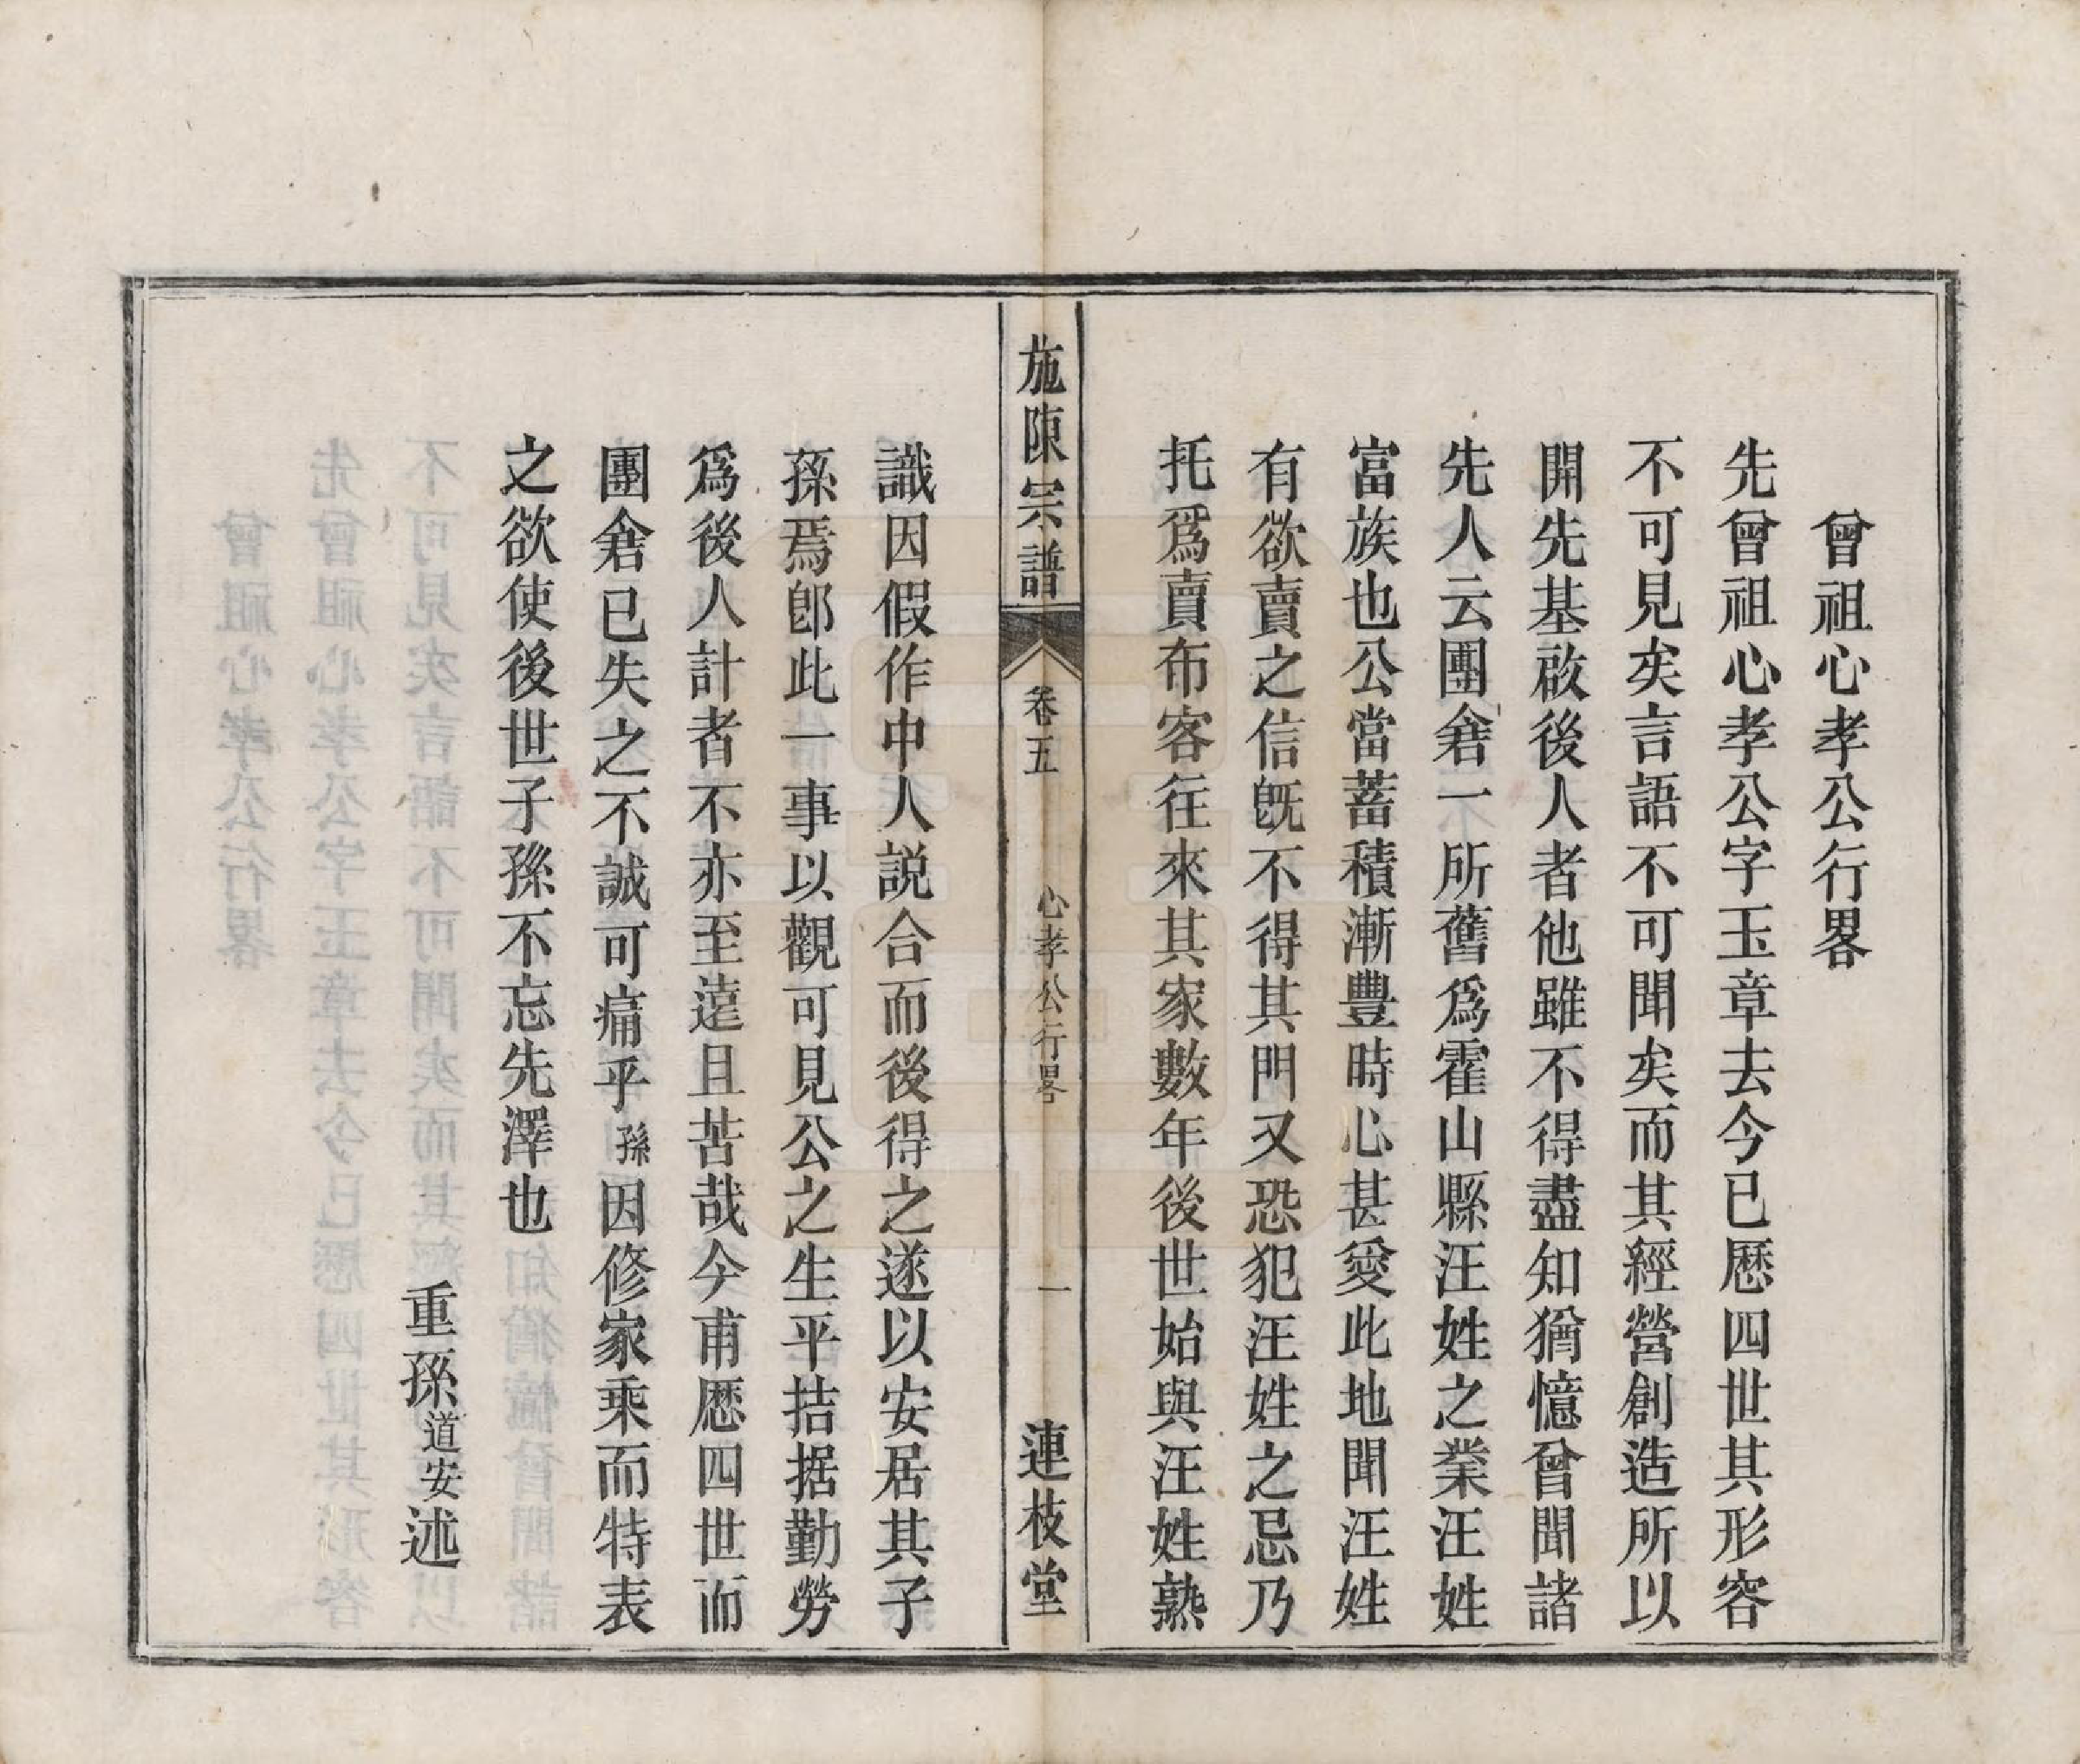 曾祖心孝公行畧
先曾祖心孝公字玉章去今已歷四世其形容
不可見矣言語不可聞矣而其經營創造所以
開先基啟後人者他雖不得盡知猶憶曾聞諸
先人云團舍一所舊爲霍山縣汪姓之業汪姓
富族也公當蓄積漸豐時心甚愛此地聞汪姓
有欲賣之信旣不得其門又恐犯汪姓之忌乃
托爲賣布客往來其家數年後世始與汪姓熟
施陳宗譜
卷五
心孝公行畧
一
連枝堂
識因假作中人説合而後得之遂以安居其子
孫焉卽此一事以觀可見公之生平拮据勤勞
爲後人計者不亦至遠且苦哉今甫歷四世而
團舍已失之不誠可痛乎孫因修家乘而特表
之欲使後世子孫不忘先澤也
重孫道安述